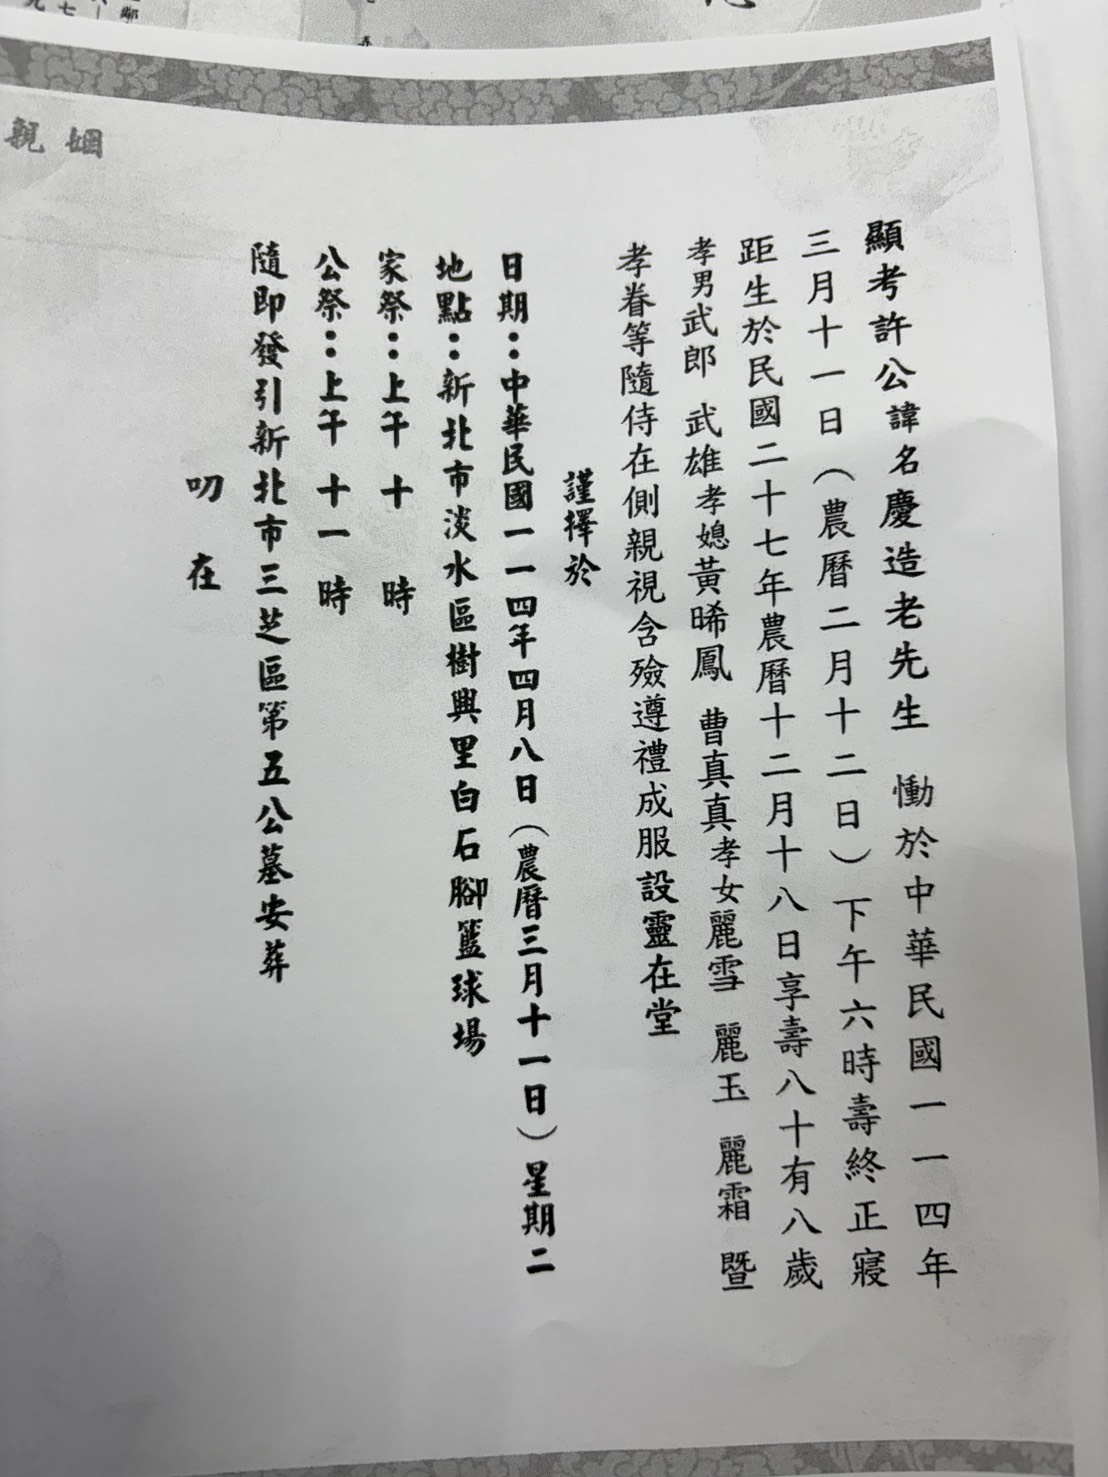 顯考許公諱名慶造老先生 慟於中華民國一一四年
三月十一日(農曆二月十二日)下午六時壽終正寢
距生於民國二十七年農曆十二月十八日享壽八十有八歲
孝男武郎 武雄孝媳黃晞鳳 曹真真孝女麗雪 麗玉 麗霜 暨
孝眷等隨侍在側親視含殮遵禮成服設靈在堂
謹擇於
日期：中華民國一一四年四月八日(農曆三月十一日)星期二
地點：新北市淡水區樹興里白石腳籃球場
家祭：上午 十 時
公祭：上午 十一 時
隨即發引新北市三芝區第五公墓安葬
叨 在
姻
親